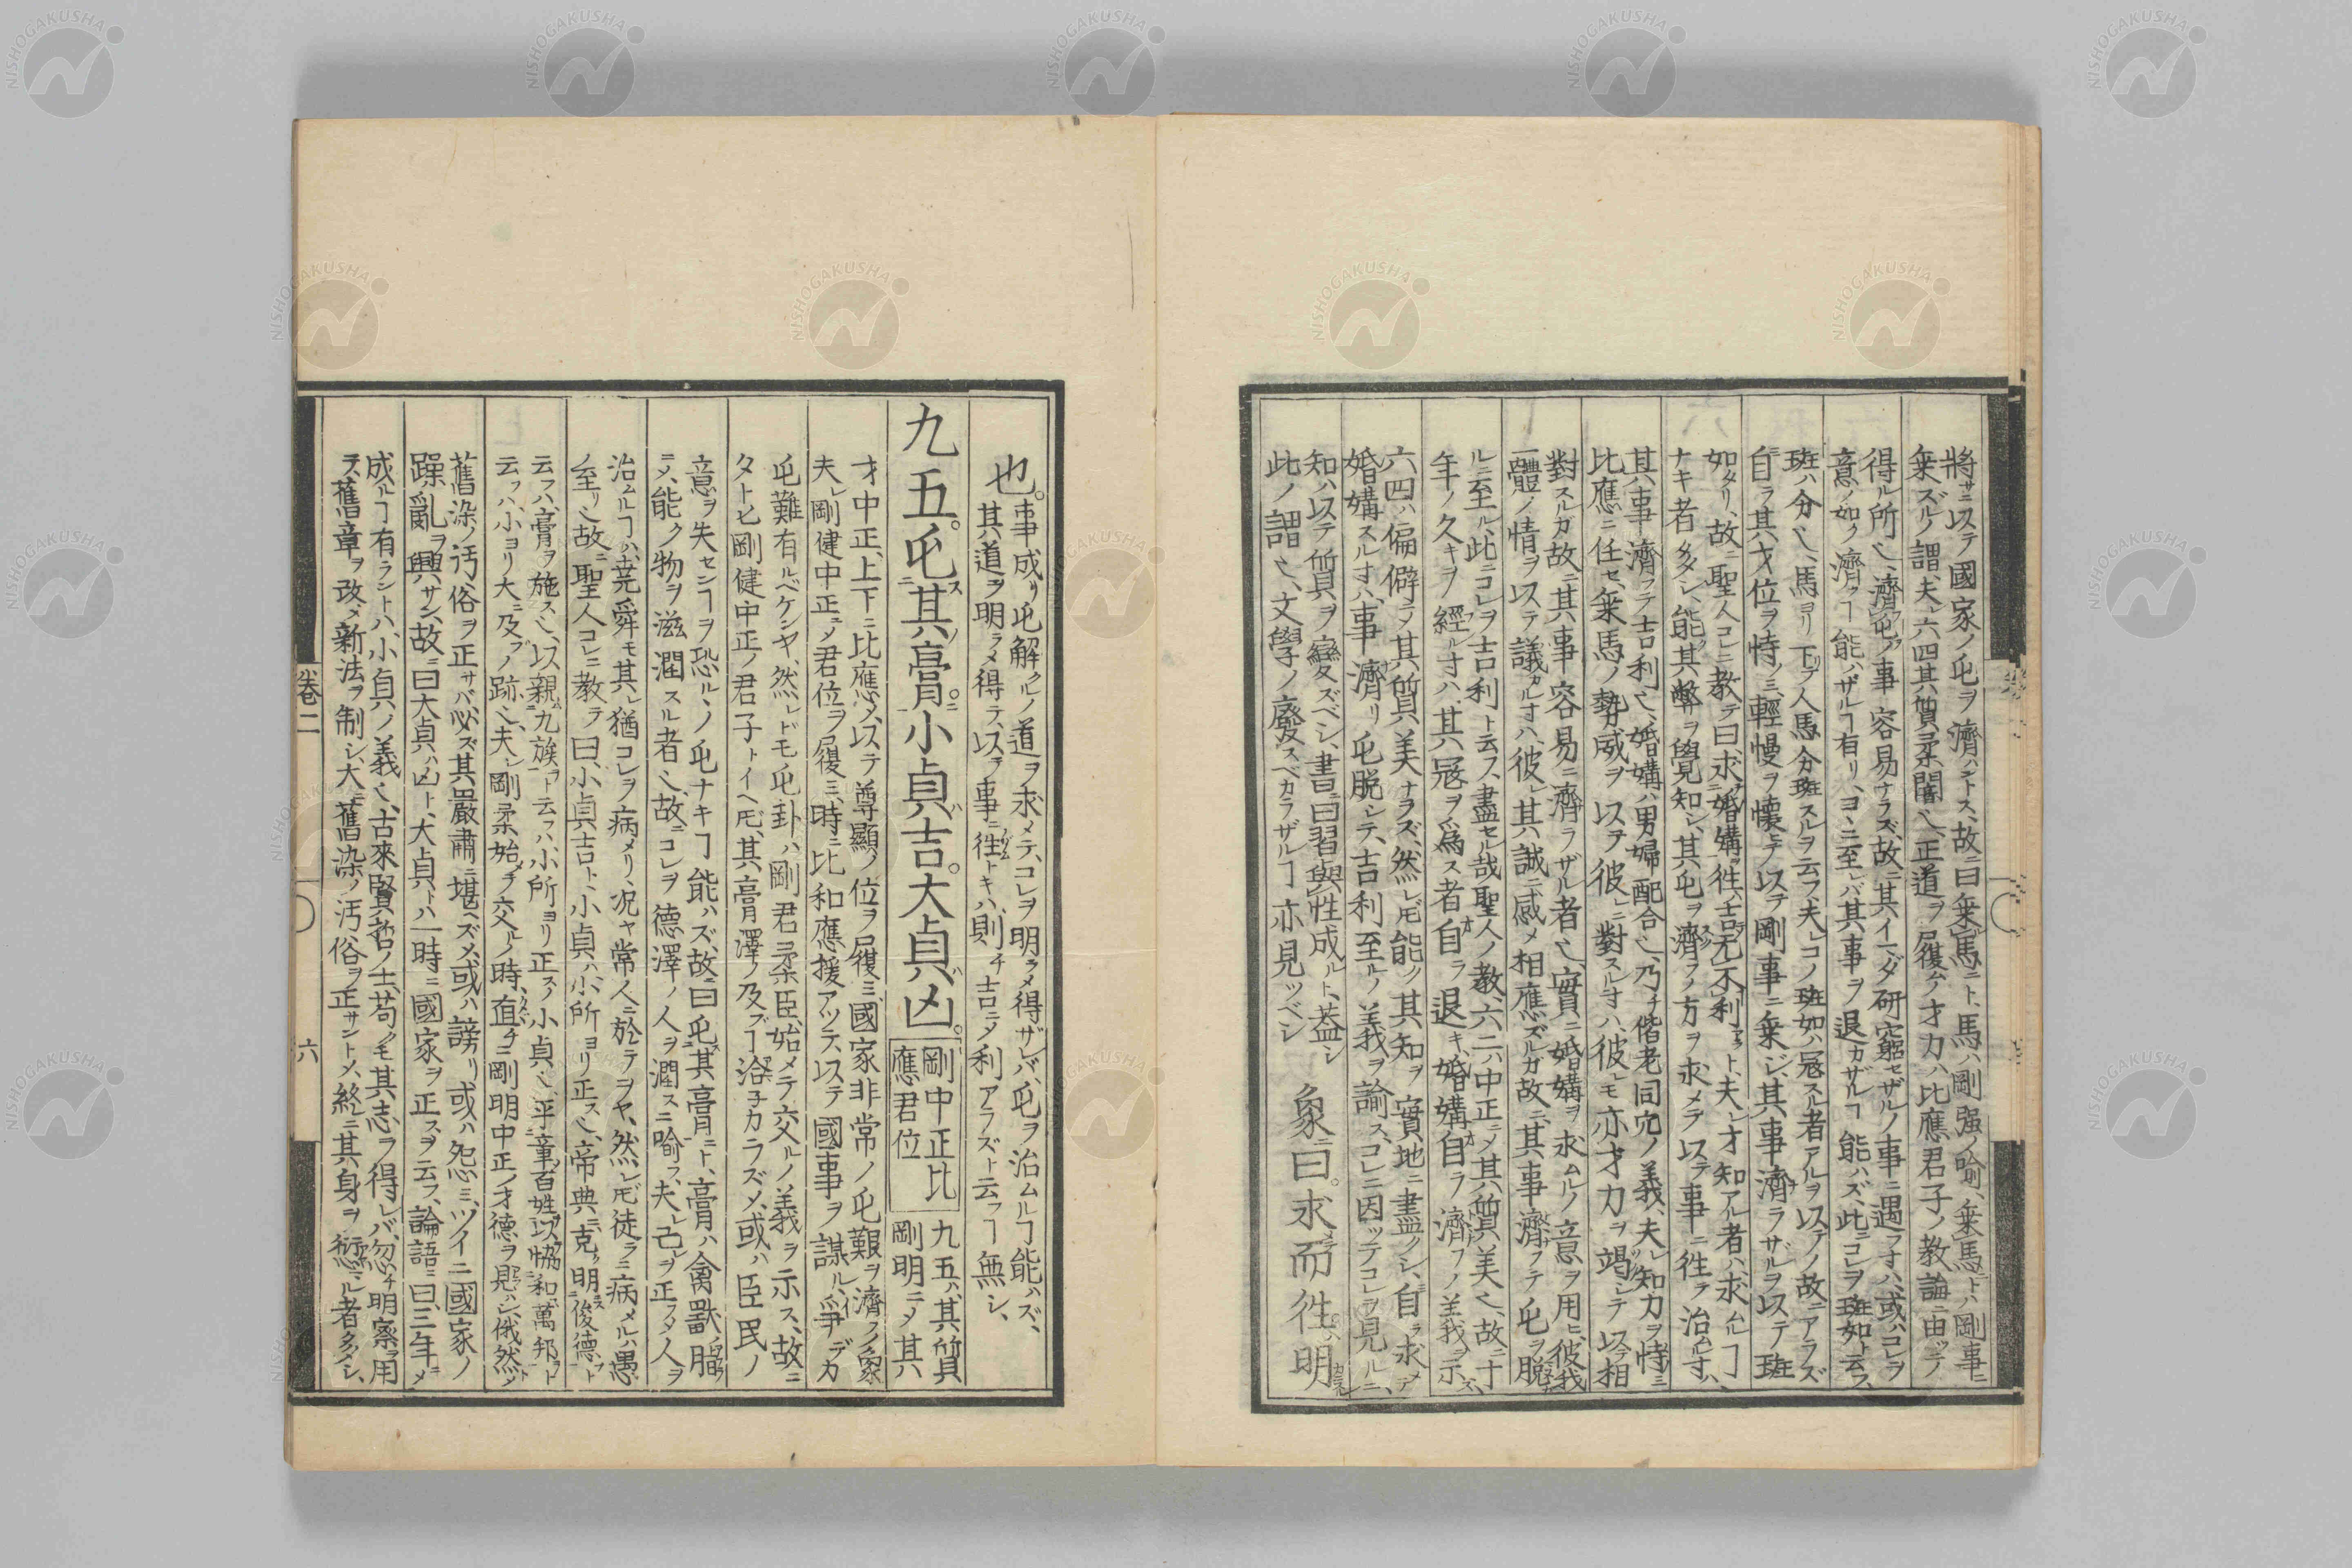 將サニ以テ國家ノ屯ヲ濟ハントス、故ニ曰乗馬ニト、馬ハ剛强ノ喩、乗馬トハ剛事ニ
乗ズルノ謂、夫レ六四其質柔闇〻、正道ヲ履ムノ才力ハ比應君子ノ教諭ニ由ッテ
得ル所〻、濟屯ノ事容易ナラズ、故ニ其イマダ研窮セザルノ事ニ遇フ寸ハ、或ハコレヲ
意ノ如ク濟フヿ能ハザルヿ有リ、コヽニ至レバ其事ヲ退カザルヿ能ハズ、此ニコレヲ班如ト云フ、
班ハ分〻、馬ヨリ下ッテ人馬分班スルヲ云フ、夫レコノ班如ハ冦スル者アルヲ以テノ故ニアラズ
自ラ其才位ヲ恃ノミ、輕慢ヲ懐ヒテ以テ剛事ニ乗ジ、其事濟ラサルヲ以テ班
如タリ、故ニ聖人コレニ教テ曰求婚媾徃吉无不利ト、夫レ才知アル者ハ求ムルヿ
ナキ者多シ、能ク其弊ヲ覺知シ、其屯ヲ濟フノ方ヲ求メテ以テ事ニ徃テ治ムル寸ハ、
其事濟ラテ吉利〻、婚媾ハ男婦配合〻、乃チ偕老同穴ノ義、夫レ知力ヲ恃ミ
比應ニ任セ、乗馬ノ勢威ヲ以ヲ彼レニ對スル寸ハ、彼レモ亦才力ヲ竭シテ以テ相
對スルガ故ニ其事容易ニ濟ラザル者〻、實ニ婚媾ヲ求ムルノ意ヲ用ヒ、彼我
一體ノ情ヲ以テ議カル寸ハ、彼レ其誠ニ感メ相應ズルガ故ニ、其事濟フテ屯ヲ脱
ルニ至ル、此ニコレヲ吉利ト云フ、盡セル哉聖人ノ教、六二ハ中正ニメ其質美〻、故ニ十
年ノ久キヲ經ル寸ハ、其冦ヲ爲ス者自ラ退キ、婚媾自ラ濟フノ義ヲ示ス、
六四ハ偏僻ニメ其質美ナラズ、然レ𪜈能ク其知ヲ實地ニ盡クシ、自ラ求メテ
婚媾スル寸ハ、事濟リ屯脱シテ、吉利至ルノ義ヲ論ス、コレニ因ッテコレヲ見ルニ、
知ハ以テ質ヲ變ズベシ、書ニ曰習與性成ルト、蓋シ
此ノ謂〻、文學ノ廢スベカラザルヿ亦見ツベシ 象ニ曰。求而徃。明
也。事成リ屯解クルノ道ヲ求メテ、コレヲ明ラメ得ザレバ、屯ヲ治ムルヿ能ハズ、
其道ヲ明ラメ得テ、以テ事ニ徃トキハ、則チ吉ニメ利アラズト云フヿ無シ、
九五。屯其膏。小貞吉。大貞凶。剛中正比應君位 九五ハ其質剛明ニメ其
才中正、上下ニ比應メ、以テ尊顯ノ位ヲ履ミ、國家非常ノ屯艱ヲ濟フノ象
夫レ剛健中正ニメ君位ヲ履ミ、時ニ比和應援アッテ、以テ國事ヲ謀ル、爭デカ
屯難有ルベケンヤ、然レドモ屯卦ハ剛君柔臣、始メテ交ルノ義ヲ示ス、故ニ
タトヒ剛健中正ノ君子トイヘ𪜈、其膏澤ノ及ブヿ洽子カラズメ、或ハ臣民ノ
意ヲ失センヿヲ恐ルヽノ屯ナキヿ能ハズ、故ニ曰屯其膏ニト、膏ハ禽獸ノ脂
ニメ、能ク物ヲ滋潤スル者〻、故ニコレヲ德澤ノ人ヲ潤スニ喩フ、夫レ己レヲ正フメ人ヲ
治ムルヿハ、堯舜モ其レ猶コレヲ病メリ、況ヤ常人ニ於テヲヤ、然レ𪜈徒ラニ病メルハ愚
ノ至リ〻、故ニ聖人コレニ教テ曰、小貞吉ト、小貞ハ小所ヨリ正ス〻、帝典ニ克ク明ニス俊德ヲト
云フハ、膏ヲ施ス〻、以親九族ヲト云フハ、小所ヨリ正スノ小貞〻、平章百姓以協和萬邦ヲト
云フハ、小ヨリ大ニ及ブノ跡〻、夫レ剛柔始メテ交ルノ時、直チニ剛明中正ノ才德ヲ見ハシ、俄然トメ
舊染ノ汚俗ヲ正サバ、必ズ其嚴肅ニ堪ヘズメ、或ハ謗リ或ハ怨ミ、ツイニ國家ノ
躁亂ヲ興サン、故ニ曰大貞ハ凶ト、大貞トハ一時ニ國家ヲ正スヲ云フ、論語ニ曰、三年ニメ
成ルヿ有ラントハ、小貞ノ義〻、古來賢哲ノ士、苟クモ其志ヲ得レバ、忽チ明察ヲ用
テ、舊章ヲ改メ新法ヲ制シ、大ニ舊染ノ汚俗ヲ正サントメ、終ニ其身ヲ愆マル者多シ、
卷二 六